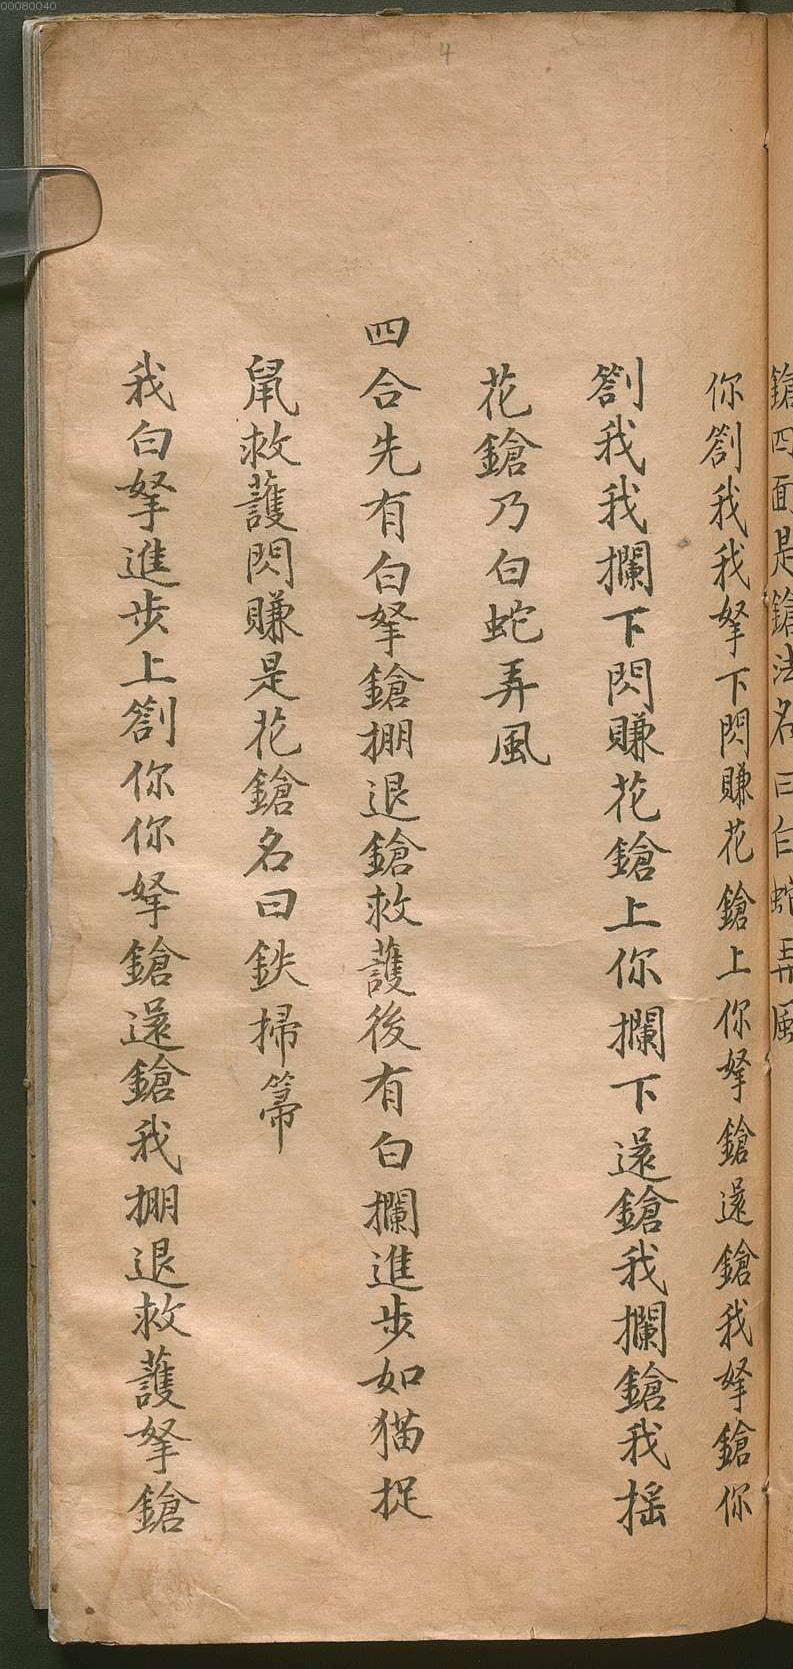 00080040
4
鎗四面是鎗法名曰白蛇弄風
你劄我我拏下閃賺花鎗上你拏鎗還鎗我拏鎗你
劄我我攔下閃賺花鎗上你攔下還鎗我攔鎗我搖
花鎗乃白蛇弄風
四合先有白拏鎗掤退鎗救護後有白攔進步如猫捉
鼠救護閃賺是花鎗名曰鉄掃箒
我白拏進步上劄你你拏鎗還鎗我掤退救護拏鎗